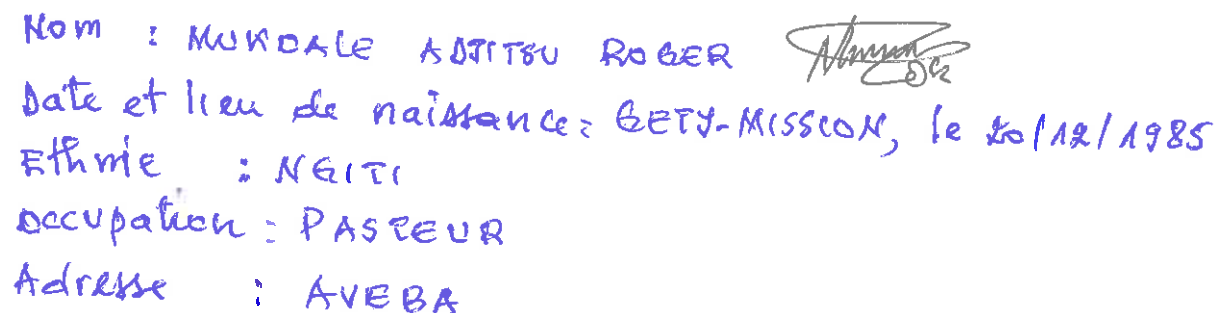 Nom : MUKDALE ADJITSU ROGER
Date et lieu de naissance : GETY-MISSION, le 20/12/1985
Ethnie : NGITI
Occupation : PASTEUR
Adresse : AVEBA